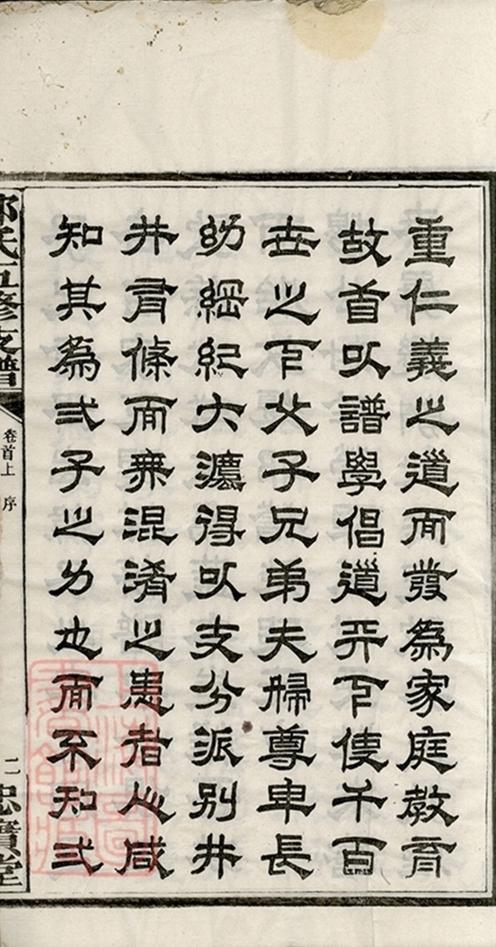 重仁義之道而發為家庭教育
故首以譜學倡道天下使千百
世之下父子兄弟夫婦尊卑長
幼綱紀大灋得以支分派別井
井有條而無混淆之患者人咸
知其為弍子之力也而不知弍
氏五修支譜
卷首上 序
二